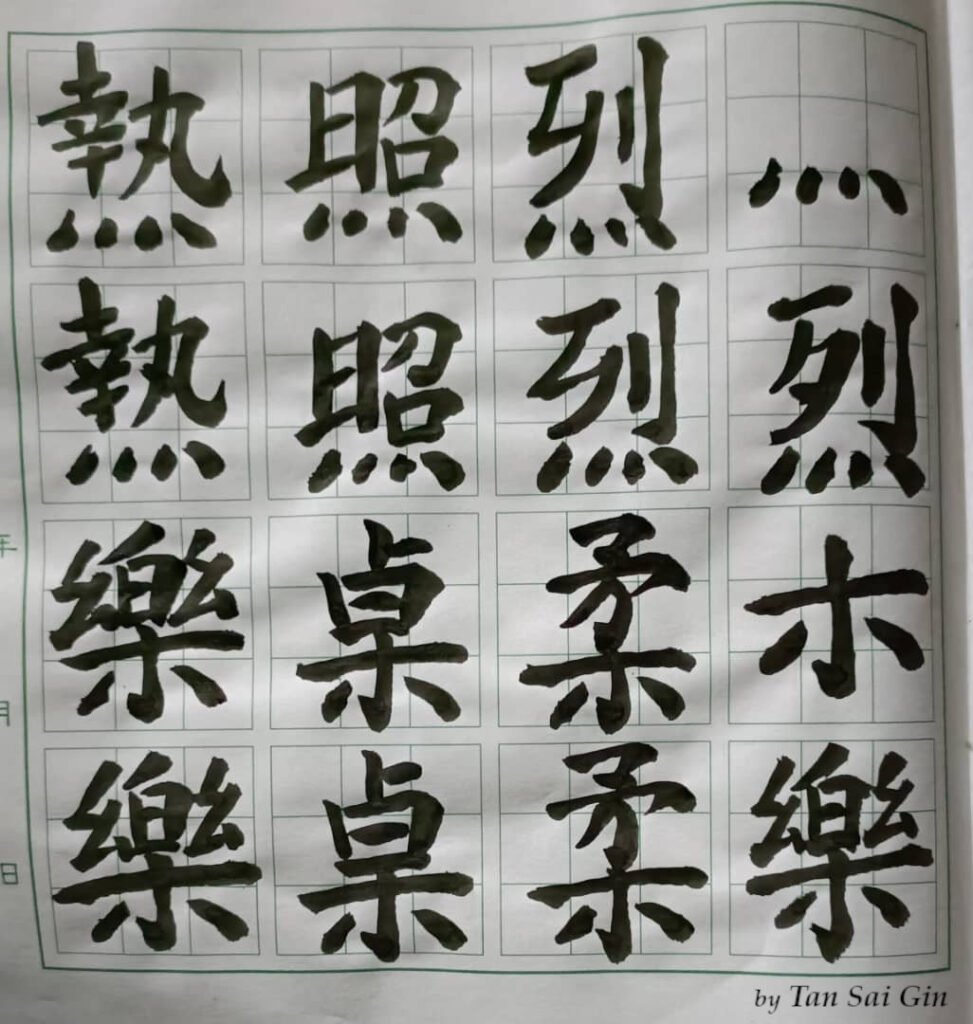 灬烈木樂
烈烈柔柔
照照桌桌
熱熱樂樂
年月日
by Tan Sai Gin